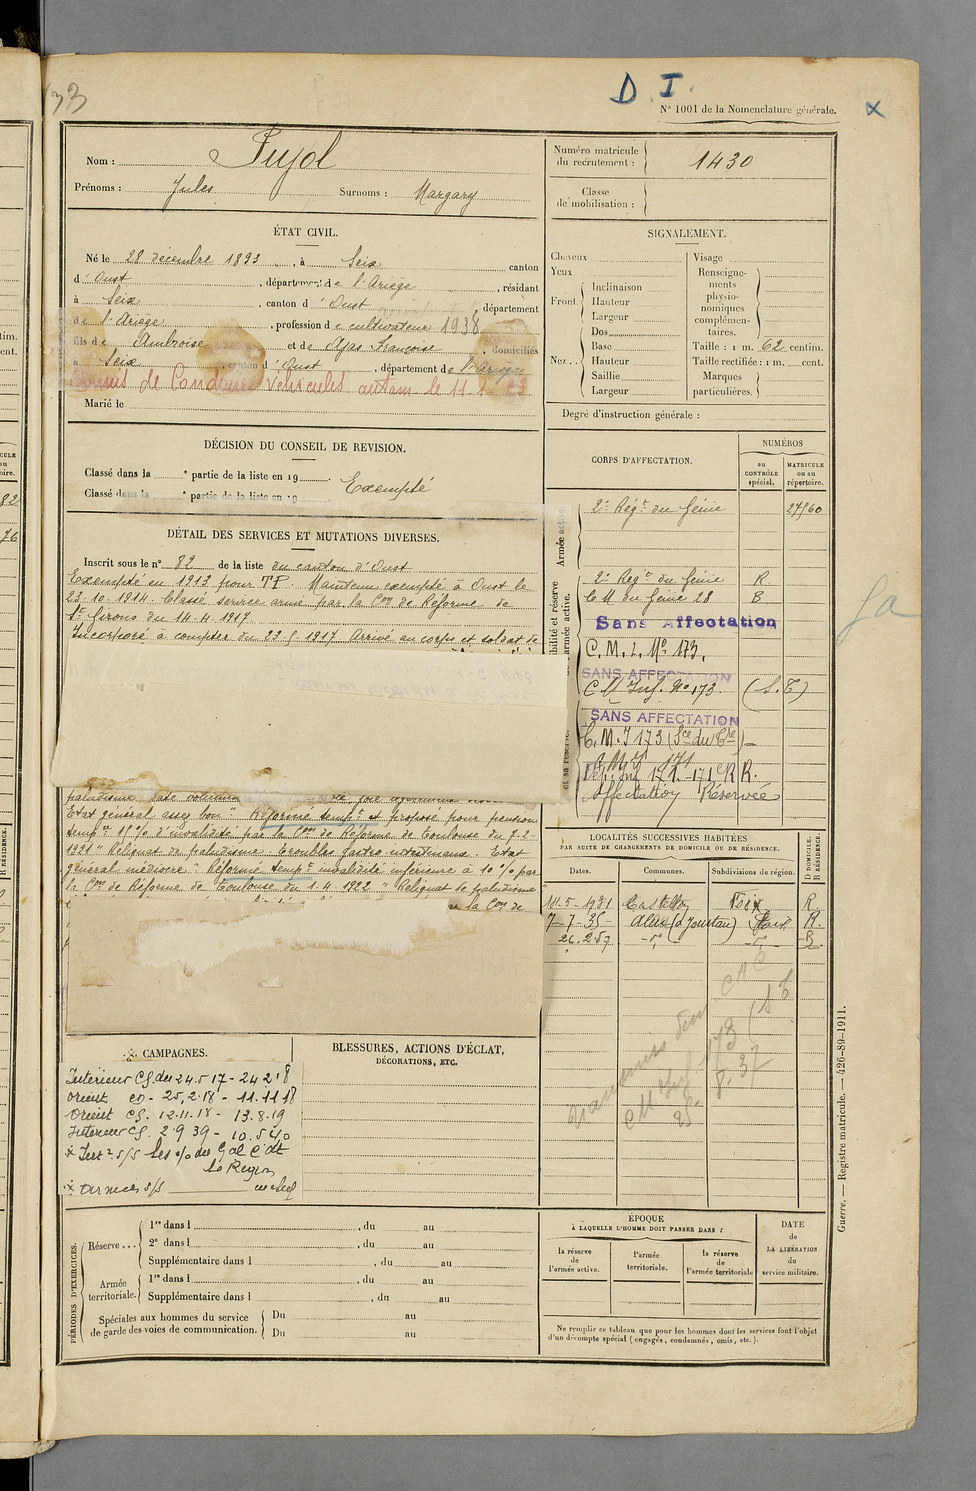 33
D. I.
N° 1001 de la Nomenclature générale.
x
Nom : Pujol
Prénoms : Jules Surnoms : Margary
Numéro matricule du recrutement : 1430
Classe de mobilisation :
ÉTAT CIVIL.
Né le 28 décembre 1893, à Seix canton
d'Oust, département de l'Ariège, résidant
à Seix, canton d'Oust département
de l'Ariège, profession de cultivateur 1938
fils de Ambroise et de Ajas Françoise, domiciliés
à Seix, canton d'Oust, département de l'Ariège
Permis de Conduire Véhicules autom le 11-1-
Marié le
SIGNALEMENT.
Cheveux
Yeux
Front
Inclinaison
Hauteur
Largeur
Nez
Dos
Base
Hauteur
Saillie
Largeur
Visage
Renseignements physionomiques complémentaires.
Taille : 1 m. 62 centim.
Taille rectifiée : 1 m. cent.
Marques particulières.
Degré d'instruction générale :
DÉCISION DU CONSEIL DE REVISION.
Classé dans la e partie de la liste en 19
Classé dans la e partie de la liste en 19
Exempté
DÉTAIL DES SERVICES ET MUTATIONS DIVERSES.
Inscrit sous le n° 82 de la liste du canton d'Oust
Exempté en 1913 pour TF. Maintenu exempté à Oust le
23-10-1914. Classé service armé par la Con de Réforme de
St Girons du 14-4-1917
Incorporé à compter du 23-5-1917. Arrivé au corps et soldat de
paludisme
Etat général assez bon" Réformé tempre et proposé pour pension
tempre 11% d'invalidité par la Con de Réforme de Toulouse du 7-2-
1921 "Reliquat de paludisme. Troubles gastro intestinaux. Etat
général médiocre". Réformé tempre invalidité inférieure à 10% par
la Con de Réforme de Toulouse du 1-4-1922 "Reliquat de paludisme
la Con de
CORPS D'AFFECTATION.
NUMÉROS
au CONTRÔLE spécial.
MATRICULE ou au répertoire.
Armée active
2e Régt du Génie 27560
2e Régt du Génie R
C M du Génie 28 B
Sans Affectation
C. M. I. No 173.
SANS AFFECTATION
C M Inf. No 173. (S.E)
SANS AFFECTATION
C. M. I 173 (Sce du Tre)
Affectation Réservée
LOCALITÉS SUCCESSIVES HABITÉES
PAR SUITE DE CHANGEMENTS DE DOMICILE OU DE RÉSIDENCE.
Dates. Communes. Subdivisions de région. D DOMICILE. R RÉSIDENCE.
14.5-1931 Foix R.
7-7-35- R.
26.2.57
CAMPAGNES.
Intérieur CS. du 24.5 17 - 24 2 18
Orient CD - 25,2.18 - 11.11 18
Orient CS. 12.11.18 - 13.8.19
Interieur CS. 2.9 39 - 10.5 40
BLESSURES, ACTIONS D'ÉCLAT,
DÉCORATIONS, ETC.
PÉRIODES D'EXERCICES.
Réserve...
1re dans l , du au
2e dans l , du au
Supplémentaire dans l , du au
Armée territoriale.
1re dans l , du au
Supplémentaire dans l , du au
Spéciales aux hommes du service de garde des voies de communication.
Du au
Du au
ÉPOQUE
À LAQUELLE L'HOMME DOIT PASSER DANS :
la réserve de l'armée active.
l'armée territoriale.
la réserve de l'armée territoriale
DATE de LA LIBÉRATION du service militaire.
Ne remplir ce tableau que pour les hommes dont les services font l'objet
d'un décompte spécial (engagés, condamnés, omis, etc.).
Guerre. — Registre matricule. — 426-89-1911.